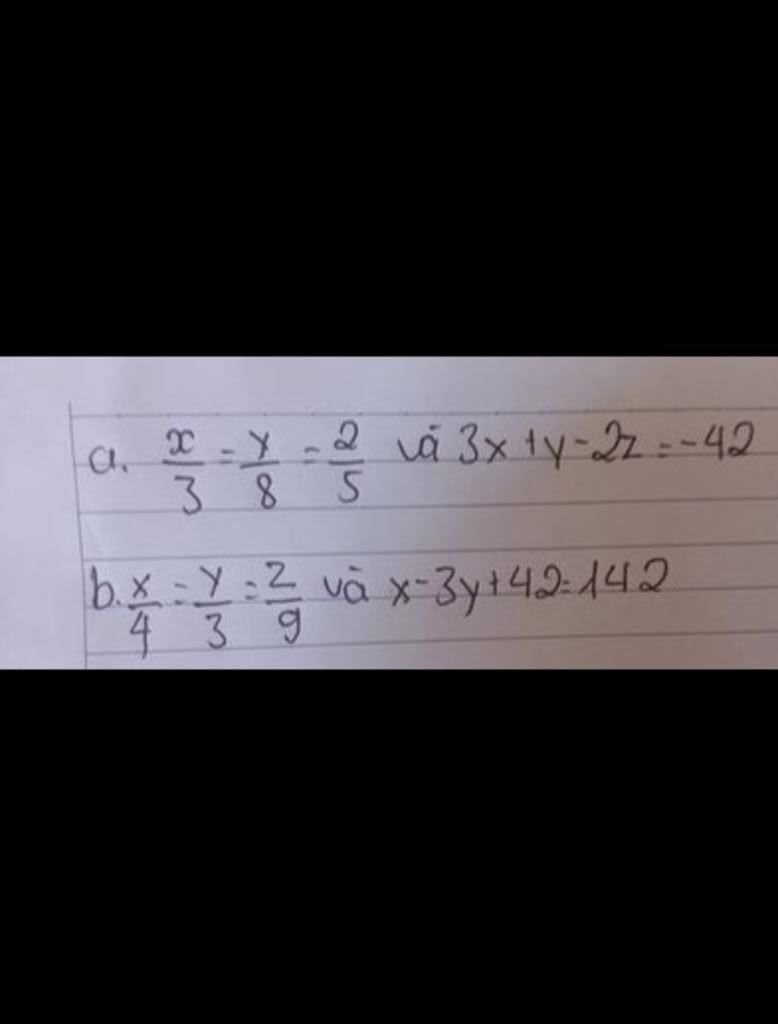 a. x/3 = y/8 = 2/5 và 3x+y-2z=-42
b. x/4 = y/3 = z/9 và x-3y+42=142